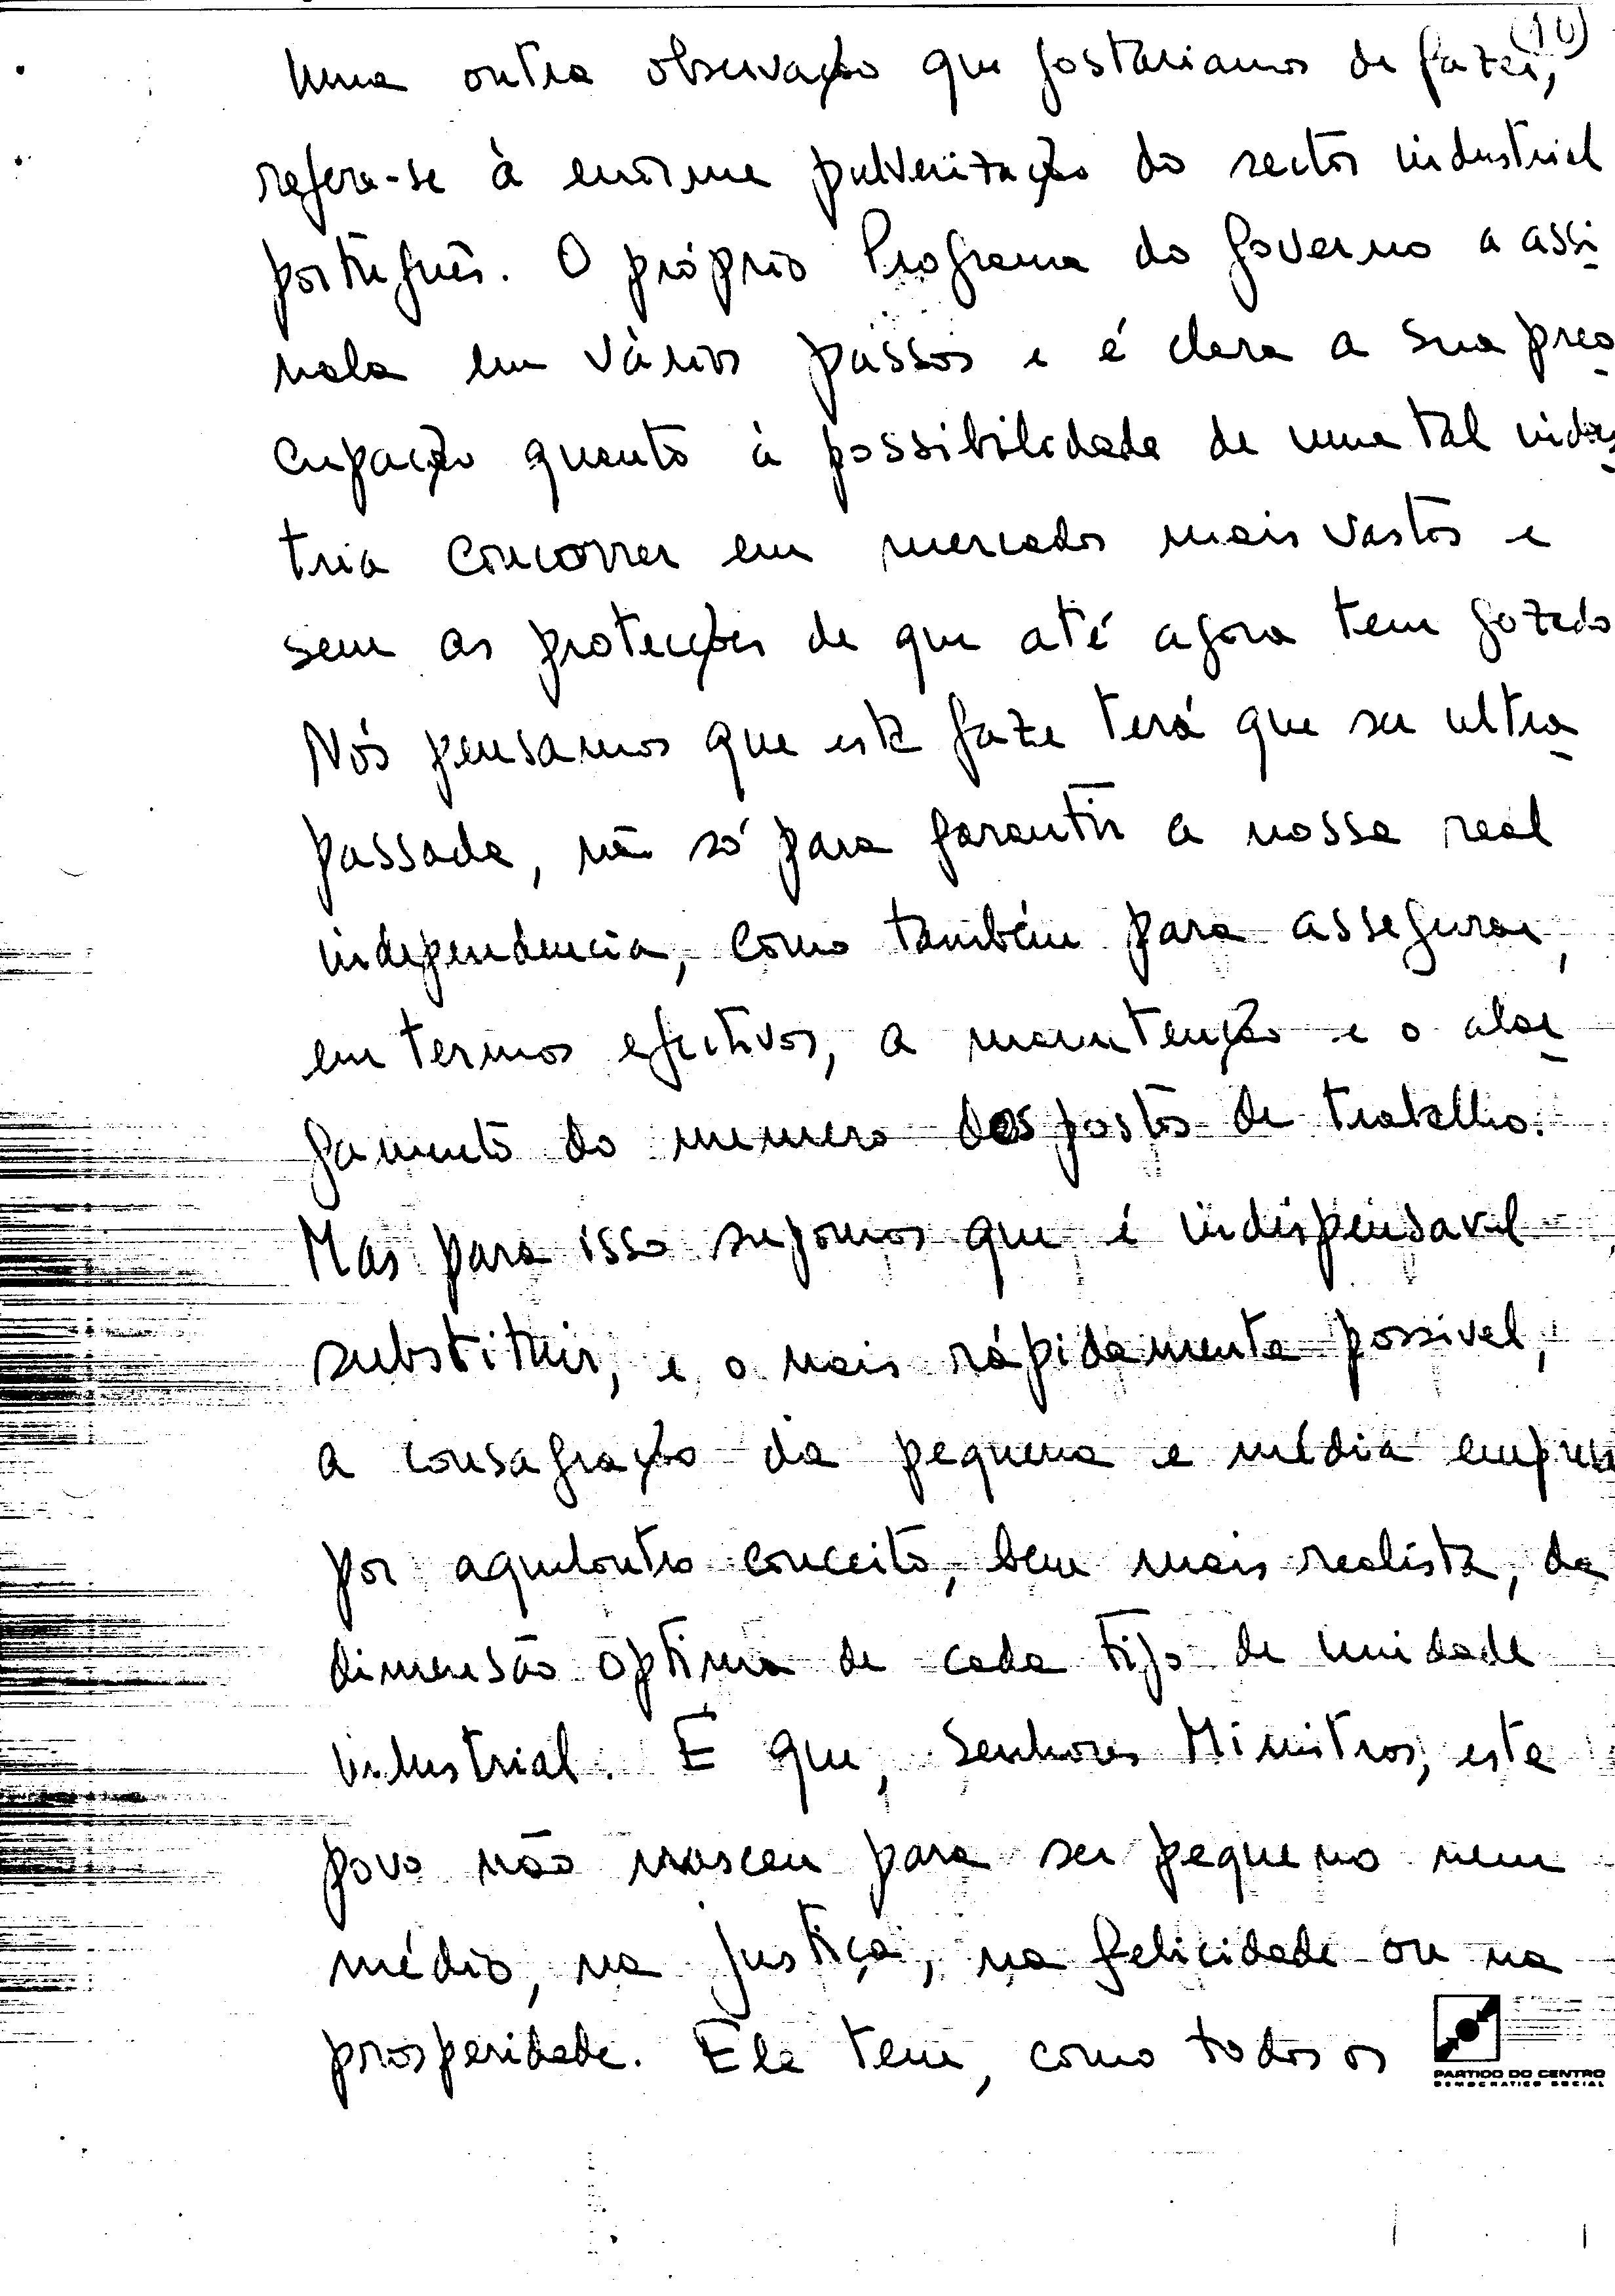 (10)
Uma outra observação que gostariamos de fazer,
refere-se à enorme pulverização do sector industrial
português. O próprio Programa do Governo a assi
nala em vários passos e é clara a sua preo
cupação quanto à possibilidade de uma tal indus
tria concorrer em mercados mais vastos e
sem as protecções de que até agora tem gozado
Nós pensamos que esta faze terá que ser ultra
passada, não só para garantir a nossa real
independencia, como também para assegurar,
em termos efectivos, a manutenção e o alar
gamento do numero dos postos de trabalho.
Mas para isso supomos que é indispensavel
substituir, e o mais rápidamente possivel,
a consagração da pequena e média empresa
por aqueloutro conceito, bem mais realista, da
dimensão óptima de cada tipo de unidade
industrial. É que, Senhores Ministros, este
povo não nasceu para ser pequeno nem
médio, na justiça, na felicidade ou na
prosperidade. Ele tem, como todos os
PARTIDO DO CENTRO
DEMOCRATICO SOCIAL